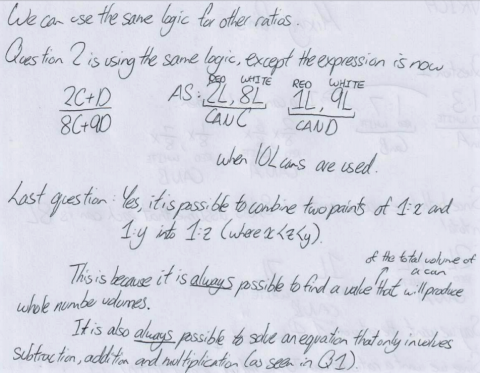 We can use the same logic for other ratios.
Question 2 is using the same logic, except the expression is now
2C+D
8C+9D
AS:
RED WHITE RED WHITE
2L, 8L 1L, 9L
CAN C CAN D
when 10L cans are used.
Last question: Yes, it is possible to combine two paints of 1:x and
1:y into 1:z (where x<z<y).
of the total volume of
a can
This is because it is always possible to find a value that will produce
whole number volumes.
It is also always possible to solve an equation that only involves
subtraction, addition and multiplication (as seen in Q1).